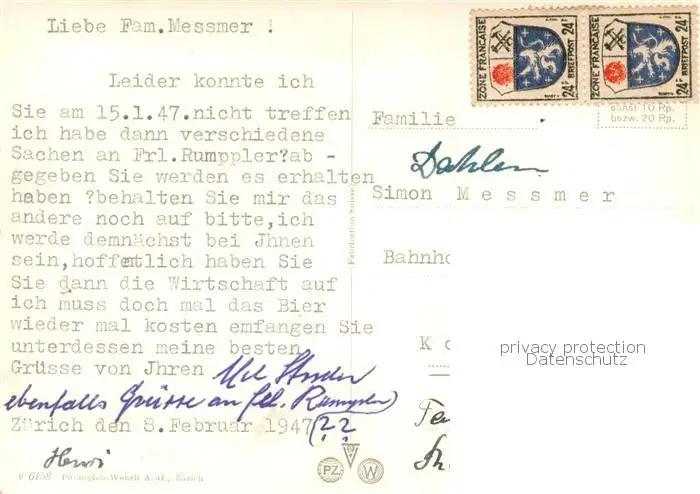 Liebe Fam.Messmer !
Leider konnte ich
Sie am 15.1.47.nicht treffen
ich habe dann verschiedene
Sachen an Frl.Rumppler?ab -
gegeben Sie werden es erhalten
haben ?behalten Sie mir das
andere noch auf bitte,ich
werde demnächst bei Jhnen
sein,hoffentlich haben Sie
Sie dann die Wirtschaft auf
ich muss doch mal das Bier
wieder mal kosten emfangen Sie
unterdessen meine besten
Grüsse von Jhren
ebenfalls Grüsse an frl. Rumpler)
Zürich den 8.Februar 1947 (??
Henri
V 6158 Photoglob-Wehrli A.-G., Zürich
PZ W
ZONE FRANÇAISE BRIEFPOST 24F 24F
ZONE FRANÇAISE BRIEFPOST 24F 24F
sonst 10 Rp.
bezw. 20 Rp.
Familie
Dahlen
Simon Messmer
Bahnho
K
privacy protection
Datenschutz